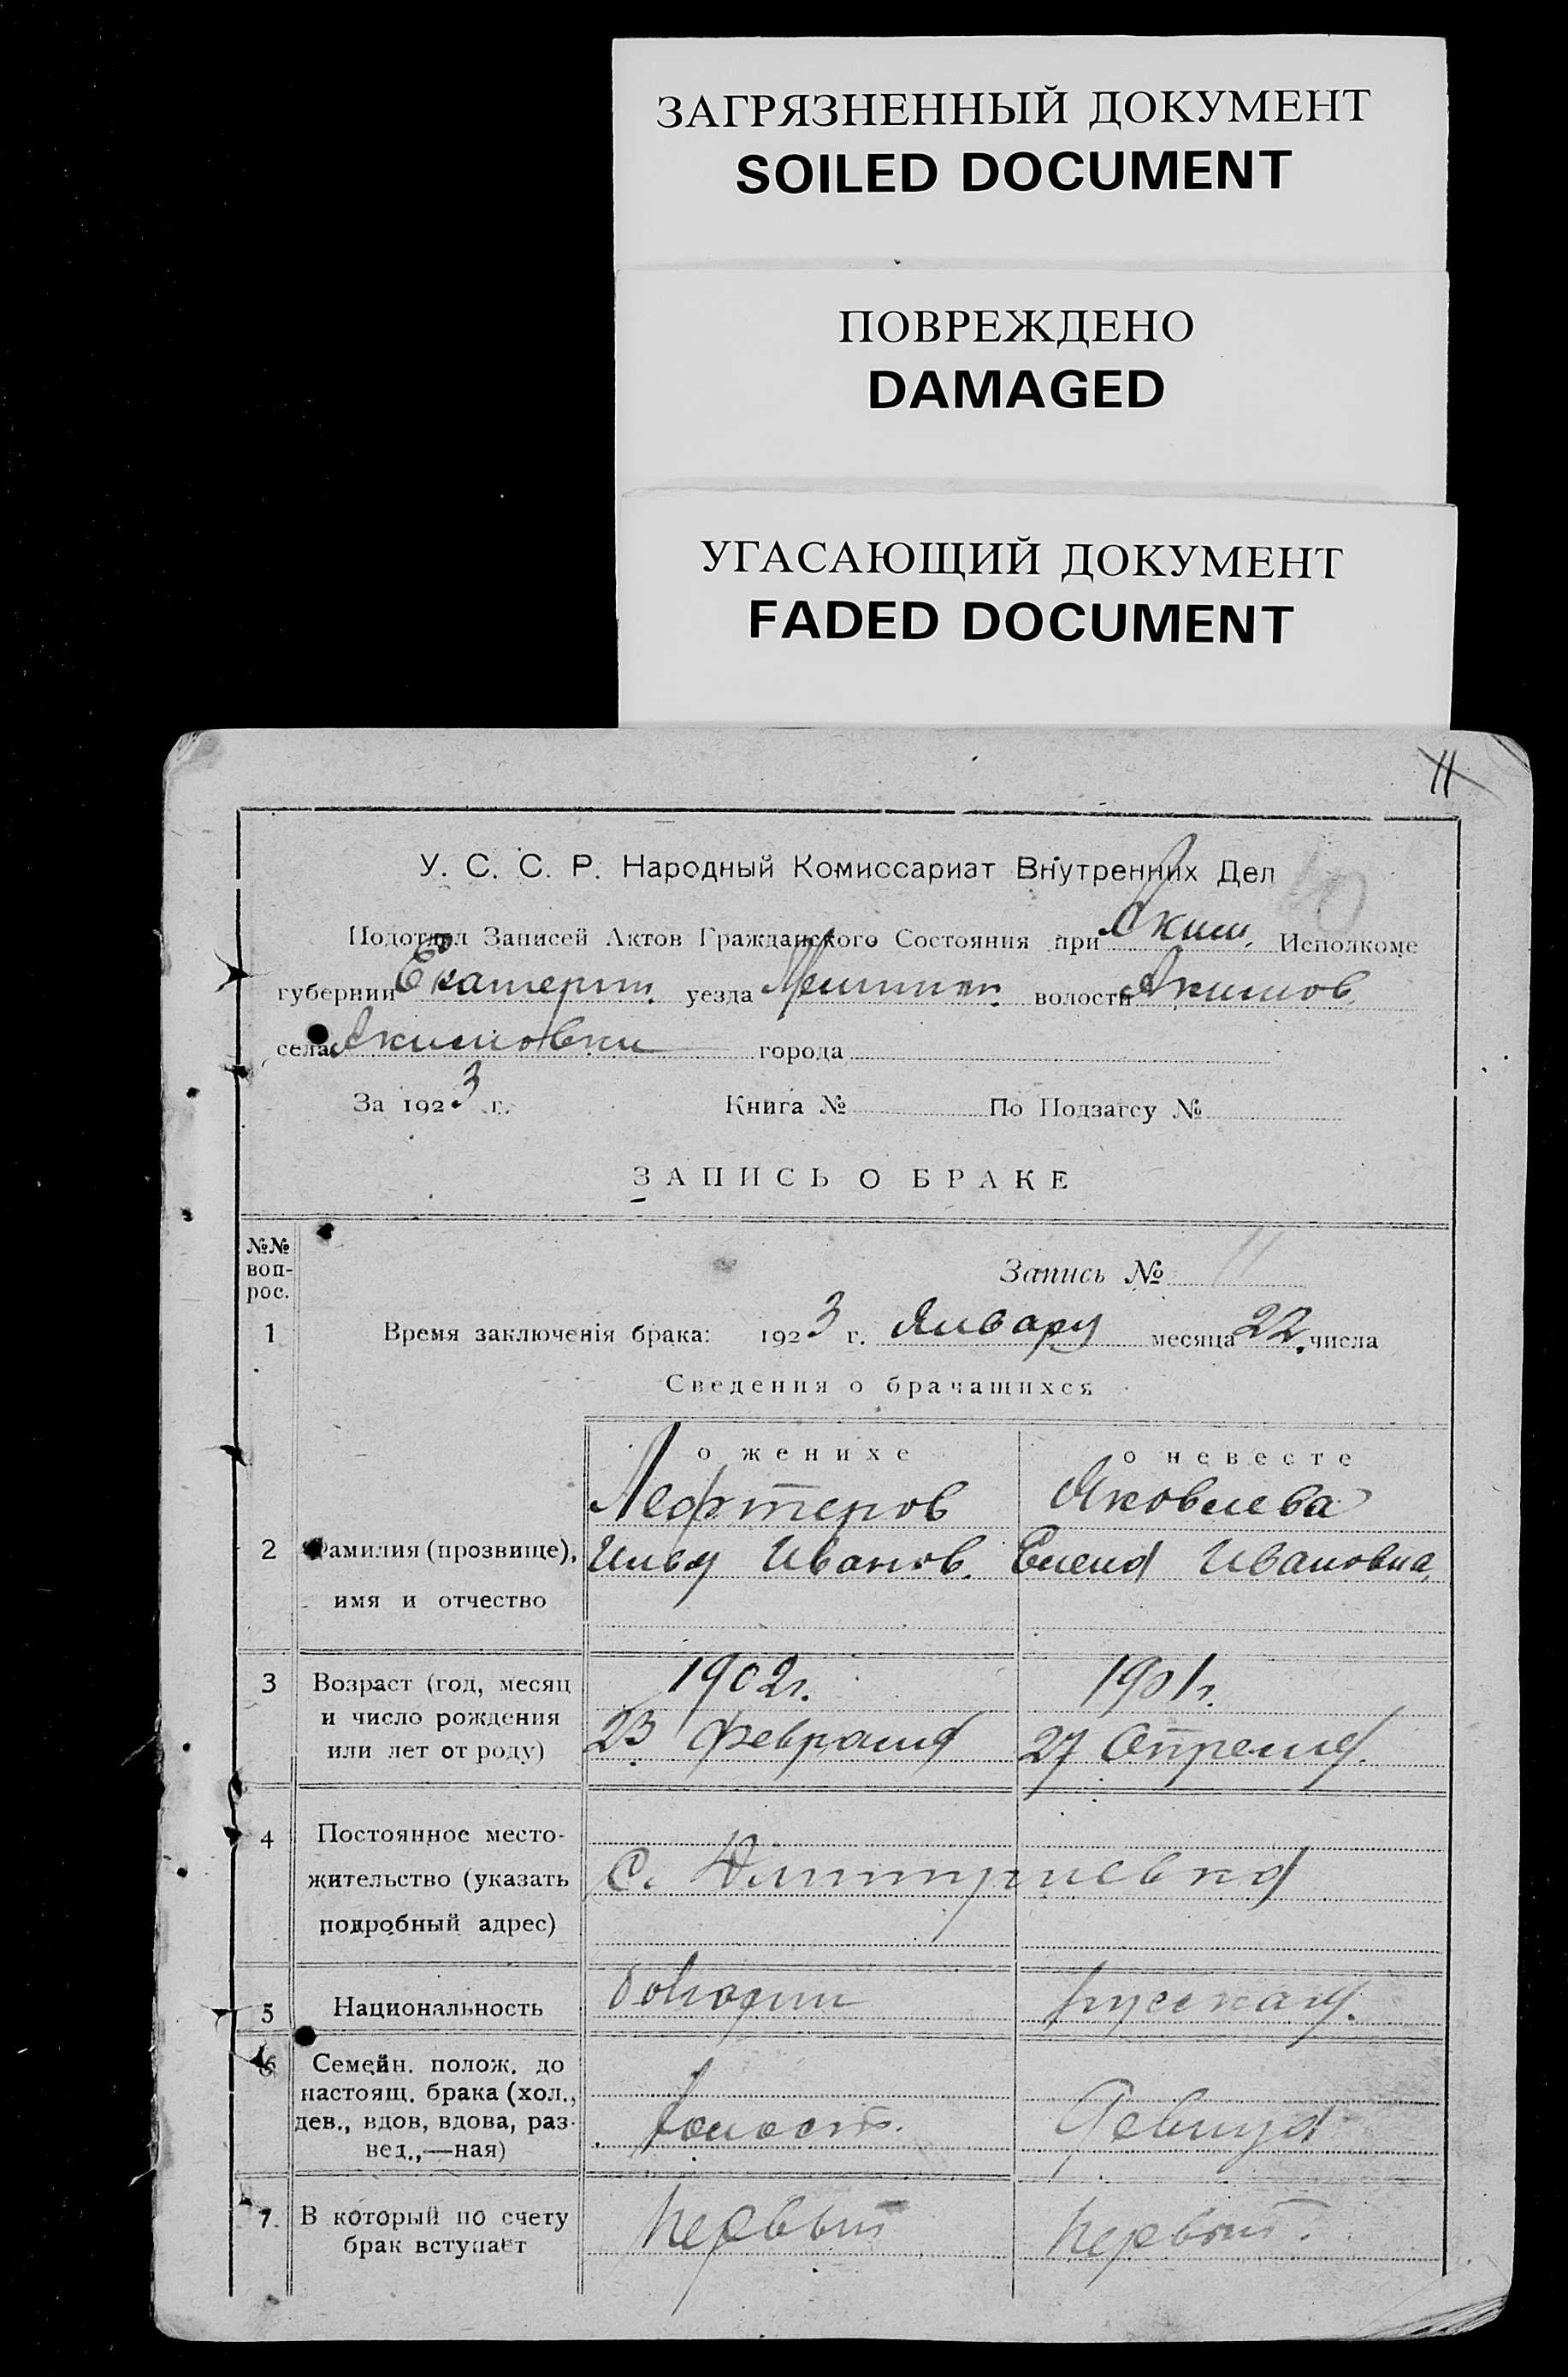 ЗАГРЯЗНЕННЫЙ ДОКУМЕНТ
SOILED DOCUMENT
ПОВРЕЖДЕНО
DAMAGED
УГАСАЮЩИЙ ДОКУМЕНТ
FADED DOCUMENT
11
У. С. С. Р. Народный Комиссариат Внутренних Дел
Подотдел Записей Актов Гражданского Состояния при Аким. Исполкоме
губернии Екатерин. уезда волости Акимов.
села Акимовки города
За 1923 г. Книга № По Подзагсу №
ЗАПИСЬ О БРАКЕ
№№ воп-рос.
Запись № 11
1 Время заключенія брака: 1923 г. Январу месяца 22. числа
Сведения о брачащихся
о женихе о невесте
Лефтеров Яковлева
2 Фамилия (прозвище), Илья Иванов. Елена Ивановна.
имя и отчество
3 Возраст (год, месяц 1902 г. 1901 г.
и число рождения
или лет от роду) 23 Февраля 27 Апреля.
4 Постоянное место-
жительство (указать С. Димитриевка
подробный адрес)
5 Национальность русская.
6 Семейн. полож. до
настоящ. брака (хол.,
дев., вдов, вдова, раз- холост. девица
вед.,—ная)
7. В который по счету первый первый.
брак вступает